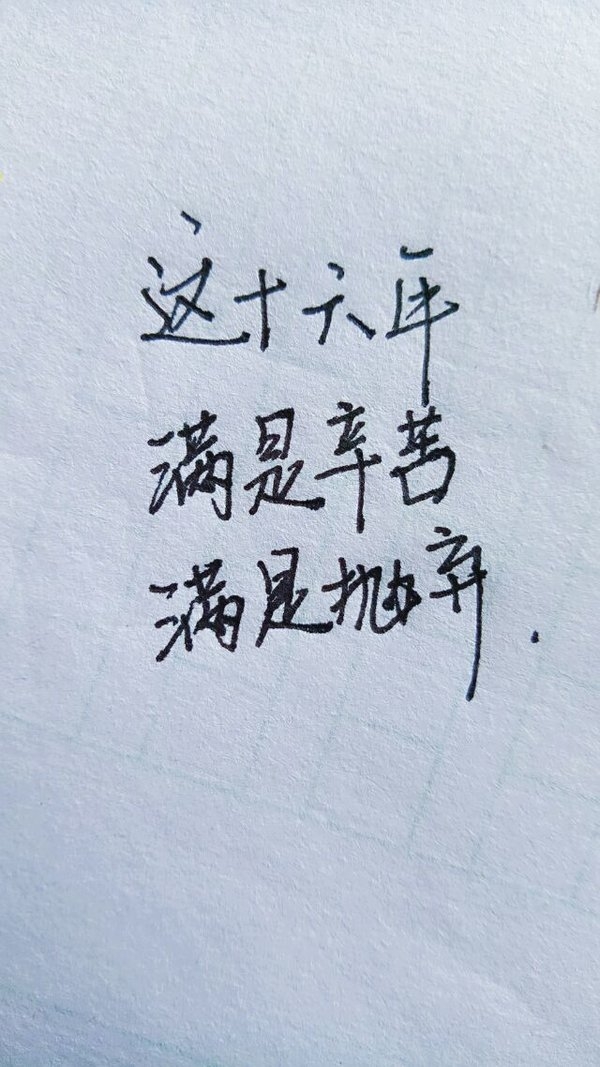 这十六年
满是辛苦
满是抛弃.